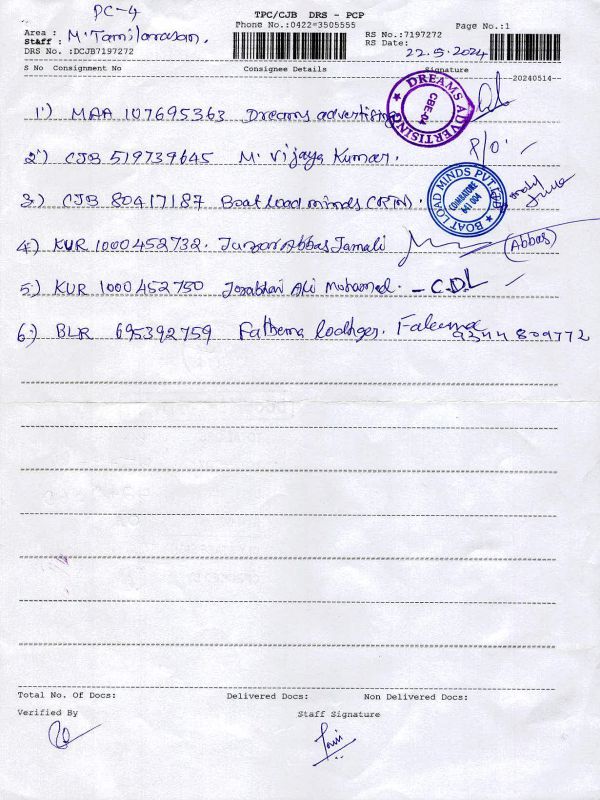 PC-4
TPC/CJB DRS - PCP
Phone No.:0422-3505555
Page No.:1
Area :
Staff : M. Tamilarasan.
RS No.:7197272
RS Date: 22.5.2024
DRS No. :DCJB7197272
S No Consignment No Consignee Details Signature
20240514
1) MAA 107695363 Dreams advertising
DREAMS ADVERTISING CBE-04
2) CJB 519739645 M. Vijaya Kumar. P/O'
3) CJB 80417187 Boat load minds
BOAT LOAD MINDS PVT. LTD. COIMBATORE 641 004
4) KUR 1000452732. Abbas Jamali (Abbas)
5) KUR 1000452750 Ali Mohamed. - C.D.L
6) BLR 695392759 Fathema
9344 809772
Total No. Of Docs: Delivered Docs: Non Delivered Docs:
Verified By Staff Signature